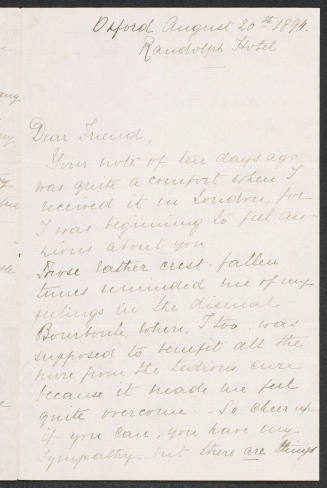 Oxford August 20th 1894.
Randolph Hotel
Dear Friend,
Your note of ten days ago
was quite a comfort when I
received it in London, for
I was beginning to feel an-
xious about you
Those rather crest-fallen
tunes reminded me of my
feelings in the dismal
Bourboule, where, I too was
supposed to benefit all the
more from the tedious cure
because it made me feel
quite overcome. So cheer up
if you can, you have my
sympathy but there are things